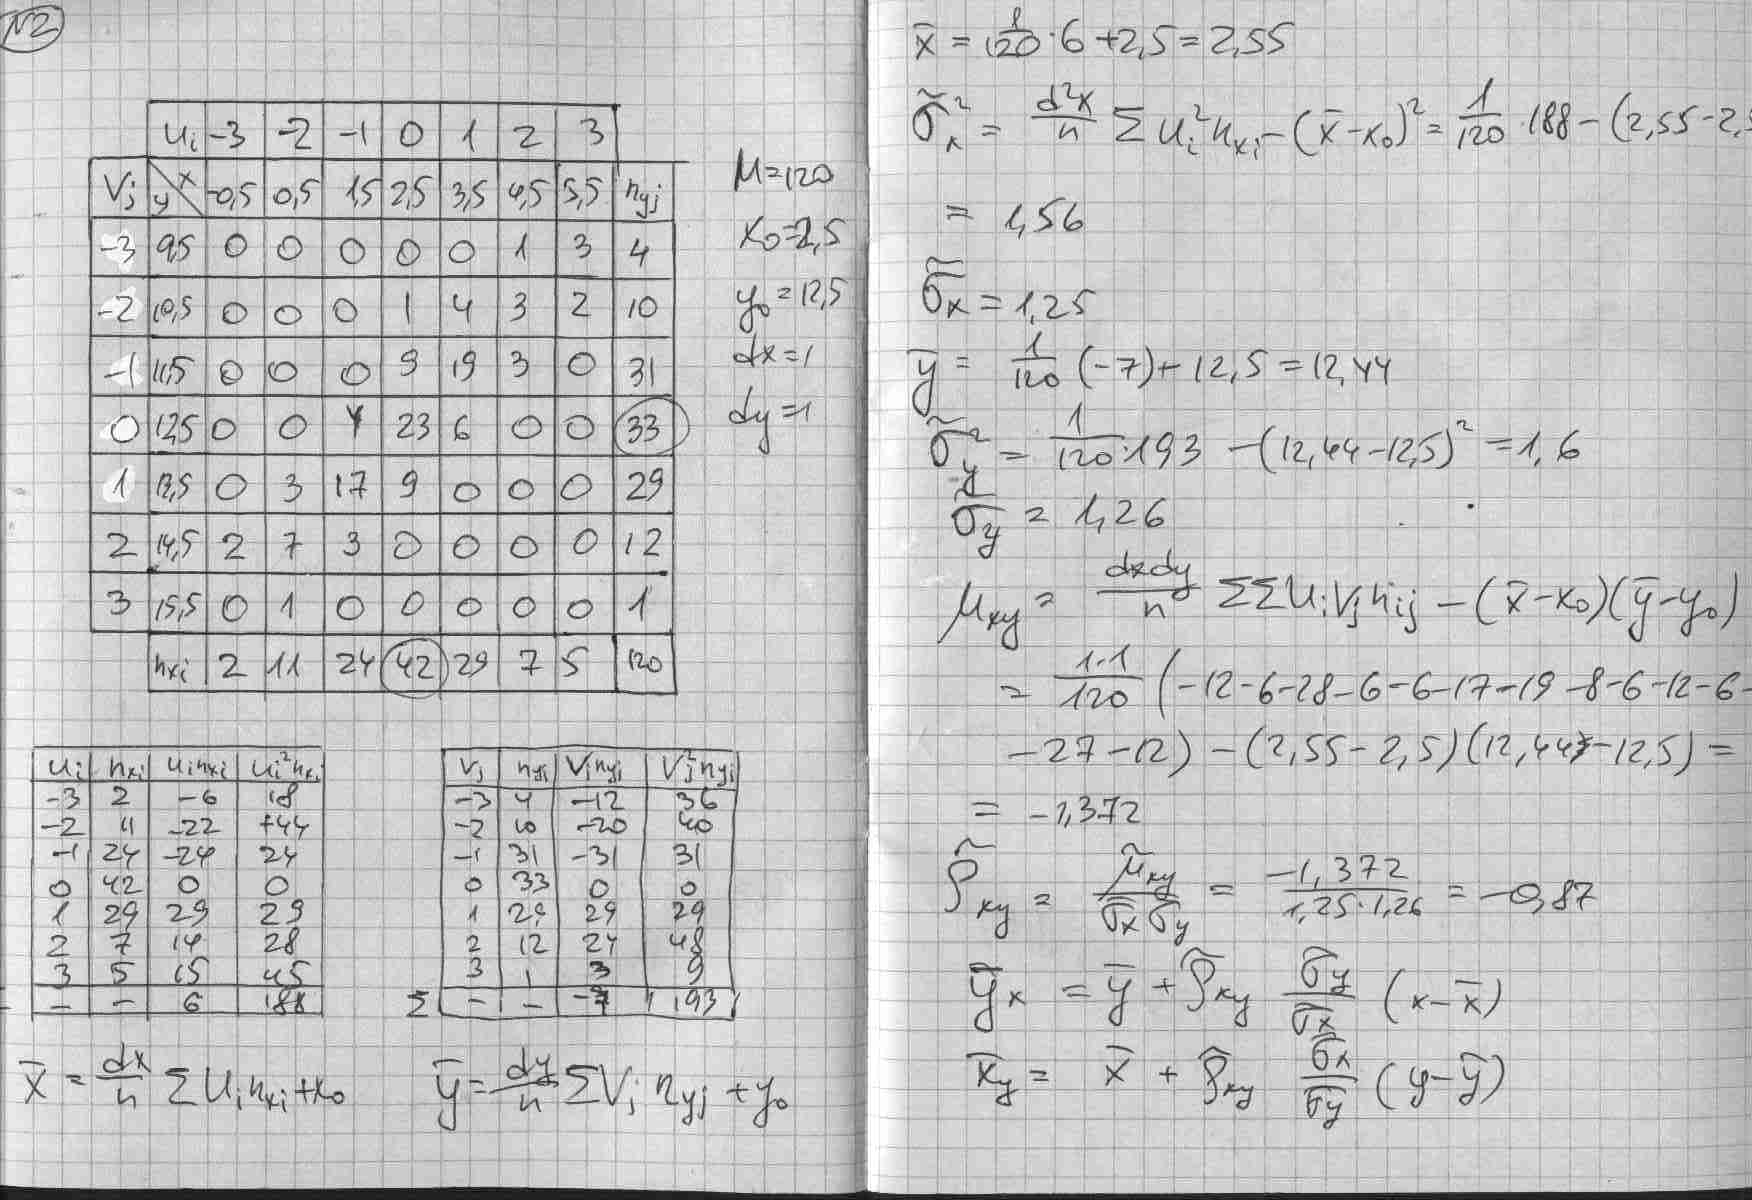 N2
ui -3 -2 -1 0 1 2 3
Vj y x -0,5 0,5 1,5 2,5 3,5 4,5 5,5 nyj
-3 9,5 0 0 0 0 0 1 3 4
-2 10,5 0 0 0 1 4 3 2 10
-1 11,5 0 0 0 9 19 3 0 31
0 12,5 0 0 4 23 6 0 0 33
1 13,5 0 3 17 9 0 0 0 29
2 14,5 2 7 3 0 0 0 0 12
3 15,5 0 1 0 0 0 0 0 1
nxi 2 11 24 42 29 7 5 120
M=120
x0=2,5
y0=12,5
dx=1
dy=1
ui nxi uinxi ui²nxi
-3 2 -6 18
-2 11 -22 +44
-1 24 -24 24
0 42 0 0
1 29 29 29
2 7 14 28
3 5 15 45
- - 6 188
Vj nyj Vjnyj Vj²nyj
-3 4 -12 36
-2 10 -20 40
-1 31 -31 31
0 33 0 0
1 29 29 29
2 12 24 48
3 1 3 9
Σ - - -7 193
x̄ = dx/n Σ Ui nxi + x0
ȳ = dy/n Σ Vj nyj + y0
x̄ = 1/120 · 6 + 2,5 = 2,55
σ̃x² = d²x/n Σ ui² nxi - (x̄ - x0)² = 1/120 · 188 - (2,55-2,5
= 1,56
σ̃x = 1,25
ȳ = 1/120 (-7) + 12,5 = 12,44
σ̃y² = 1/120 · 193 - (12,44-12,5)² = 1,6
σ̃y = 1,26
μxy = dxdy/n ΣΣ Ui Vj nij - (x̄ - x0)(ȳ - y0)
= 1·1/120 (-12-6-28-6-6-17-19-8-6-12-6-
-27-12) - (2,55-2,5)(12,44-12,5) =
= -1,372
ρ̃xy = μ̃xy/σ̃xσ̃y = -1,372/1,25·1,26 = -0,87
ȳx = ȳ + ρ̃xy σ̃y/σ̃x (x-x̄)
x̄y = x̄ + ρ̃xy σ̃x/σ̃y (y-ȳ)